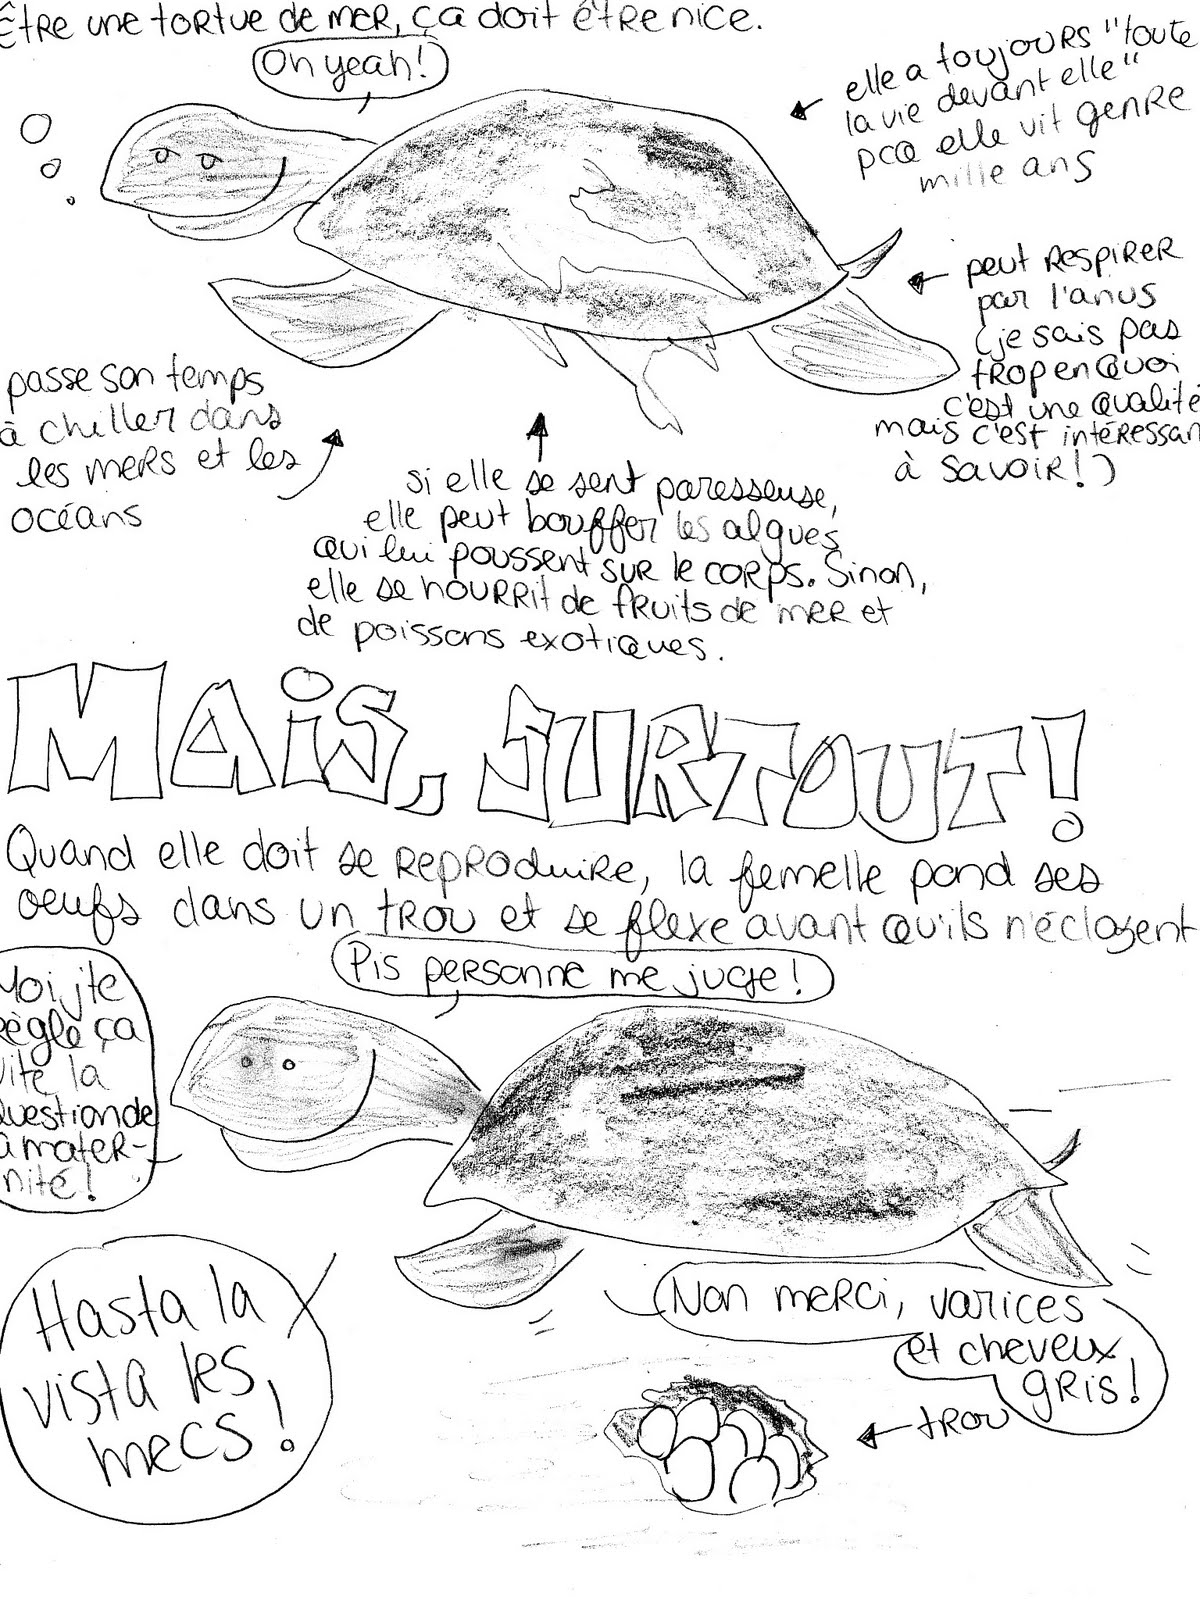 Être une tortue de mer, ça doit être nice.
Oh yeah!
elle a toujours "toute
la vie devant elle"
pcq elle vit genre
mille ans
peut respirer
par l'anus
(je sais pas
trop en quoi
c'est une qualité
mais c'est intéressan
à savoir!)
passe son temps
à chiller dans
les mers et les
océans
si elle se sent paresseuse,
elle peut bouffer les algues
qui lui poussent sur le corps. Sinon,
elle se nourrit de fruits de mer et
de poissons exotiques.
MAiS, SURTOUT!
Quand elle doit se reproduire, la femelle pond ses
oeufs dans un trou et se flexe avant qu'ils n'éclosent
Pis personne me juge!
Moi j'te
règle ça
vite la
question de
la mater-
nité!
Hasta la
vista les
mecs!
Non merci, varices
et cheveux
gris!
trou